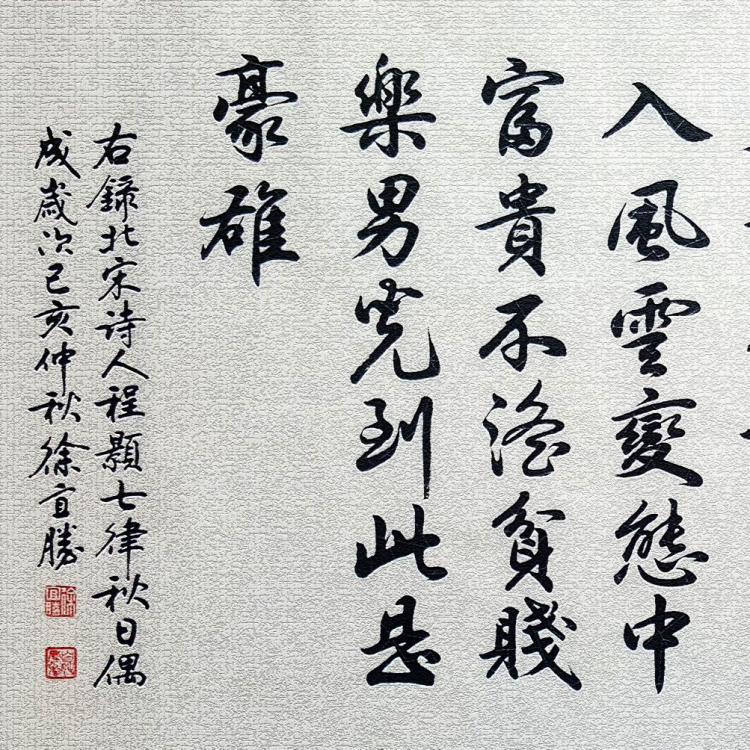 入風雲變態中
富貴不淫貧賤
樂男兒到此是
豪雄
右錄北宋詩人程顥七律秋日偶
成歲次己亥仲秋徐宜勝